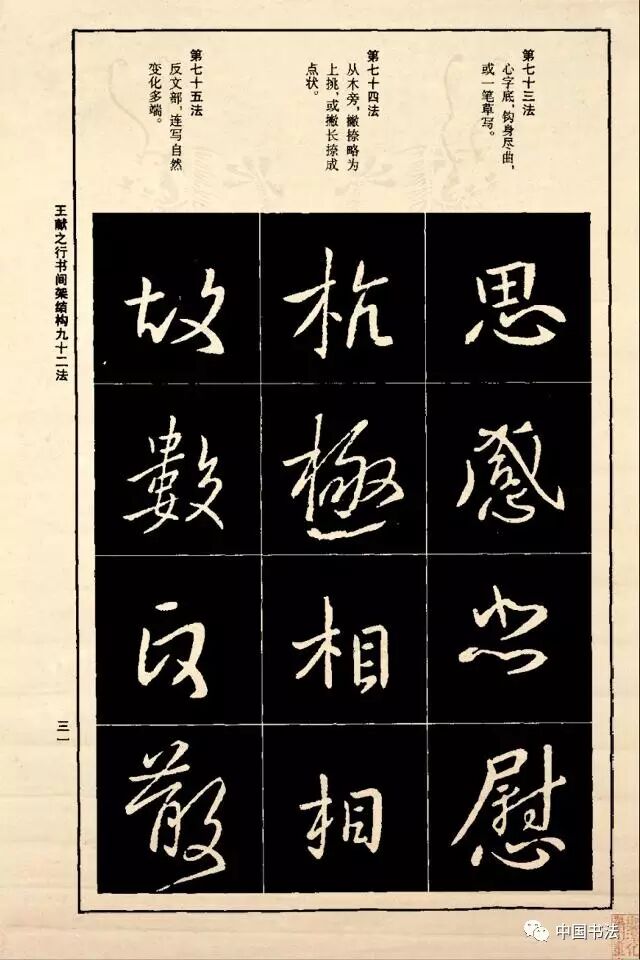 第七十三法
心字底，钩身尽曲，
或一笔草写。
第七十四法
从木旁，撇捺略为
上挑，或撇长捺成
点状。
第七十五法
反文部，连写自然
变化多端。
思感慰
杭極相相
故數散
王献之行书间架结构九十二法
三一
中国书法